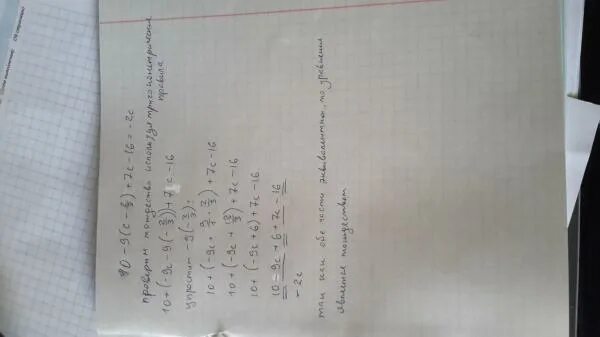 10 - 9(c - 2/3) + 7c - 16 = -2c
проверим тождество используя тригонометрические
правила
10 + (-9c - 9(-2/3)) + 7c - 16
упростим -9(-2/3):
10 + (-9c + 9/1 · 2/3) + 7c - 16
10 + (-9c + 18/3) + 7c - 16
10 + (-9c + 6) + 7c - 16
10 - 9c + 6 + 7c - 16
- 2c
так как обе части эквивалентны, то уравнение
является тождеством